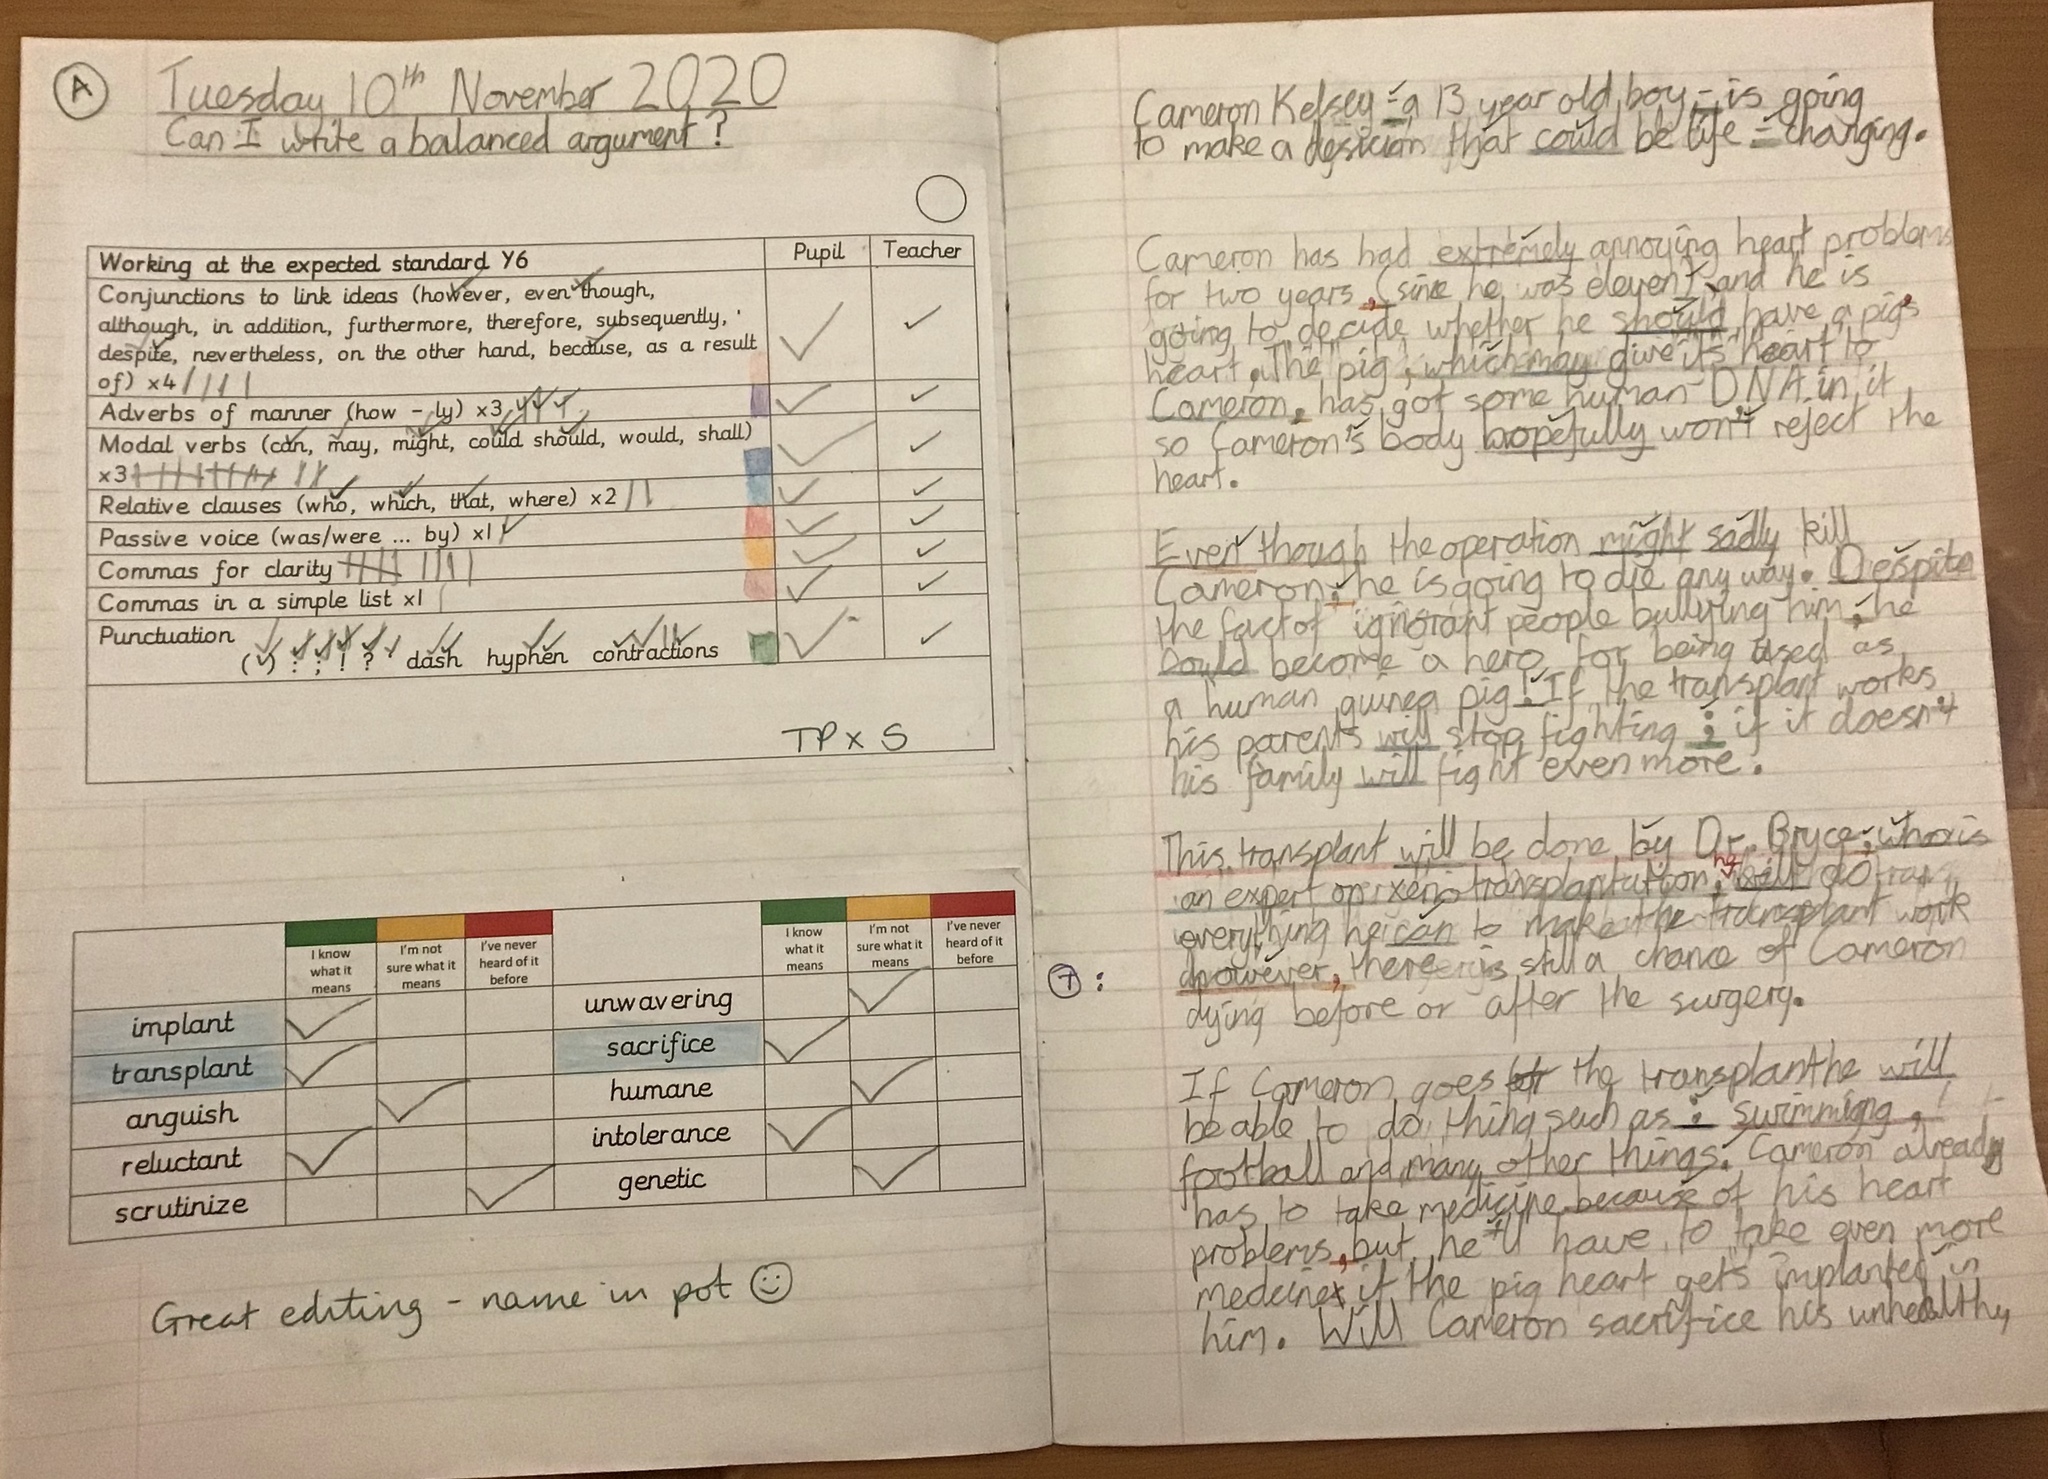 A
Tuesday 10th November 2020
Can I write a balanced argument?
Working at the expected standard Y6
Pupil
Teacher
Conjunctions to link ideas (however, even though,
although, in addition, furthermore, therefore, subsequently,
despite, nevertheless, on the other hand, because, as a result
of) x4
Adverbs of manner (how – ly) x3
Modal verbs (can, may, might, could should, would, shall)
x3
Relative clauses (who, which, that, where) x2
Passive voice (was/were ... by) x1
Commas for clarity
Commas in a simple list x1
Punctuation
( , ) : ; ! ? dash hyphen contractions
TP x S
I know what it means
I'm not sure what it means
I've never heard of it before
I know what it means
I'm not sure what it means
I've never heard of it before
implant
transplant
anguish
reluctant
scrutinize
unwavering
sacrifice
humane
intolerance
genetic
Great editing - name in pot
Cameron Kelsey - a 13 year old boy - is going
to make a desicion that could be life - changing.
Cameron has had extremely annoying heart problems
for two years, (since he was eleven) and he is
going to decide whether he should have a pig's
heart. The pig, which may give its heart to
Cameron, has got some human DNA in it
so Cameron's body hopefully won't reject the
heart.
Even though the operation might sadly kill
Cameron, he is going to die any way. Despite
the fact of ignorant people bullying him, he
could become a hero for being used as
a human guinea pig! If the transplant works
his parents will stop fighting ; if it doesn't
his family will fight even more.
This transplant will be done by Dr. Bryce, who is
an expert on xenotransplantation, he will do
everything he can to make the transplant work
however, there is still a chance of Cameron
T :
dying before or after the surgery.
If Cameron goes the transplant he will
be able to do thing such as : swimmigng,
football and many other things. Cameron already
has to take medicine because of his heart
problems, but he'll have to take even more
medecine if the pig heart gets implanted in
him. Will Cameron sacrifice his unhealthy